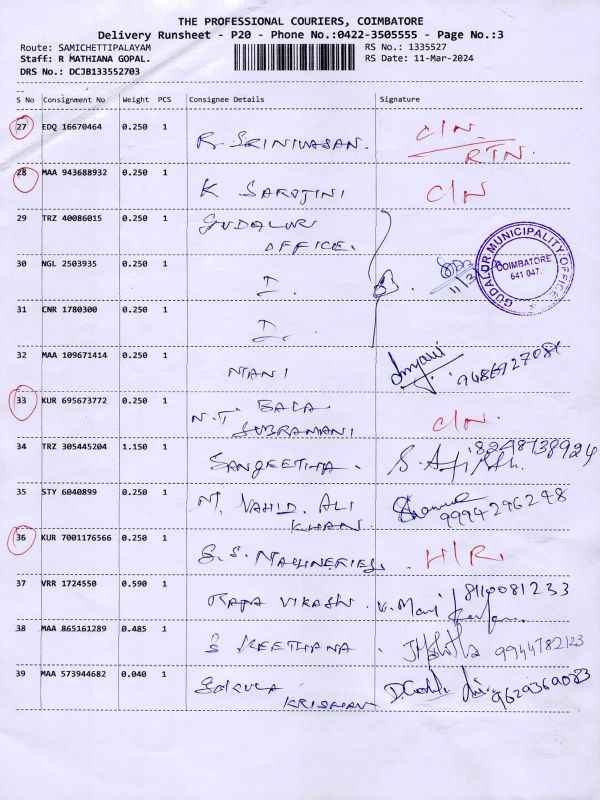 THE PROFESSIONAL COURIERS, COIMBATORE
Delivery Runsheet - P20 - Phone No.:0422-3505555 - Page No.:3
Route: SAMICHETTIPALAYAM RS No.: 1335527
Staff: R MATHIANA GOPAL. RS Date: 11-Mar-2024
DRS No.: DCJB133552703
S No Consignment No Weight PCS Consignee Details Signature
27 EDQ 16670464 0.250 1 R. SRINIVASAN. C/N. RTN.
28 MAA 943688932 0.250 1 K SAROJINI C/N
29 TRZ 40086015 0.250 1 GUDALUR
OFFICE.
GUDALUR MUNICIPALITY OFFICE
COIMBATORE
641 047.
30 NGL 2503935 0.250 1 I
31 CNR 1780300 0.250 1 I.
32 MAA 109671414 0.250 1 MANI
33 KUR 695673772 0.250 1 N.T. BALA
SUBRAMANI C/N.
34 TRZ 305445204 1.150 1 SANGEETHA. 8248738924
35 STY 6040899 0.250 1 VAHID. ALI
KHAN. 9994296248
36 KUR 7001176566 0.250 1 S.S. MACHINERIES. H/R.
37 VRR 1724550 0.590 1 RAJA VIKASH. V. Mani 8110081233
38 MAA 865161289 0.485 1 S KEETHANA. 9944782123
39 MAA 573944682 0.040 1 GOKULA
KRISHNAN 9629369083